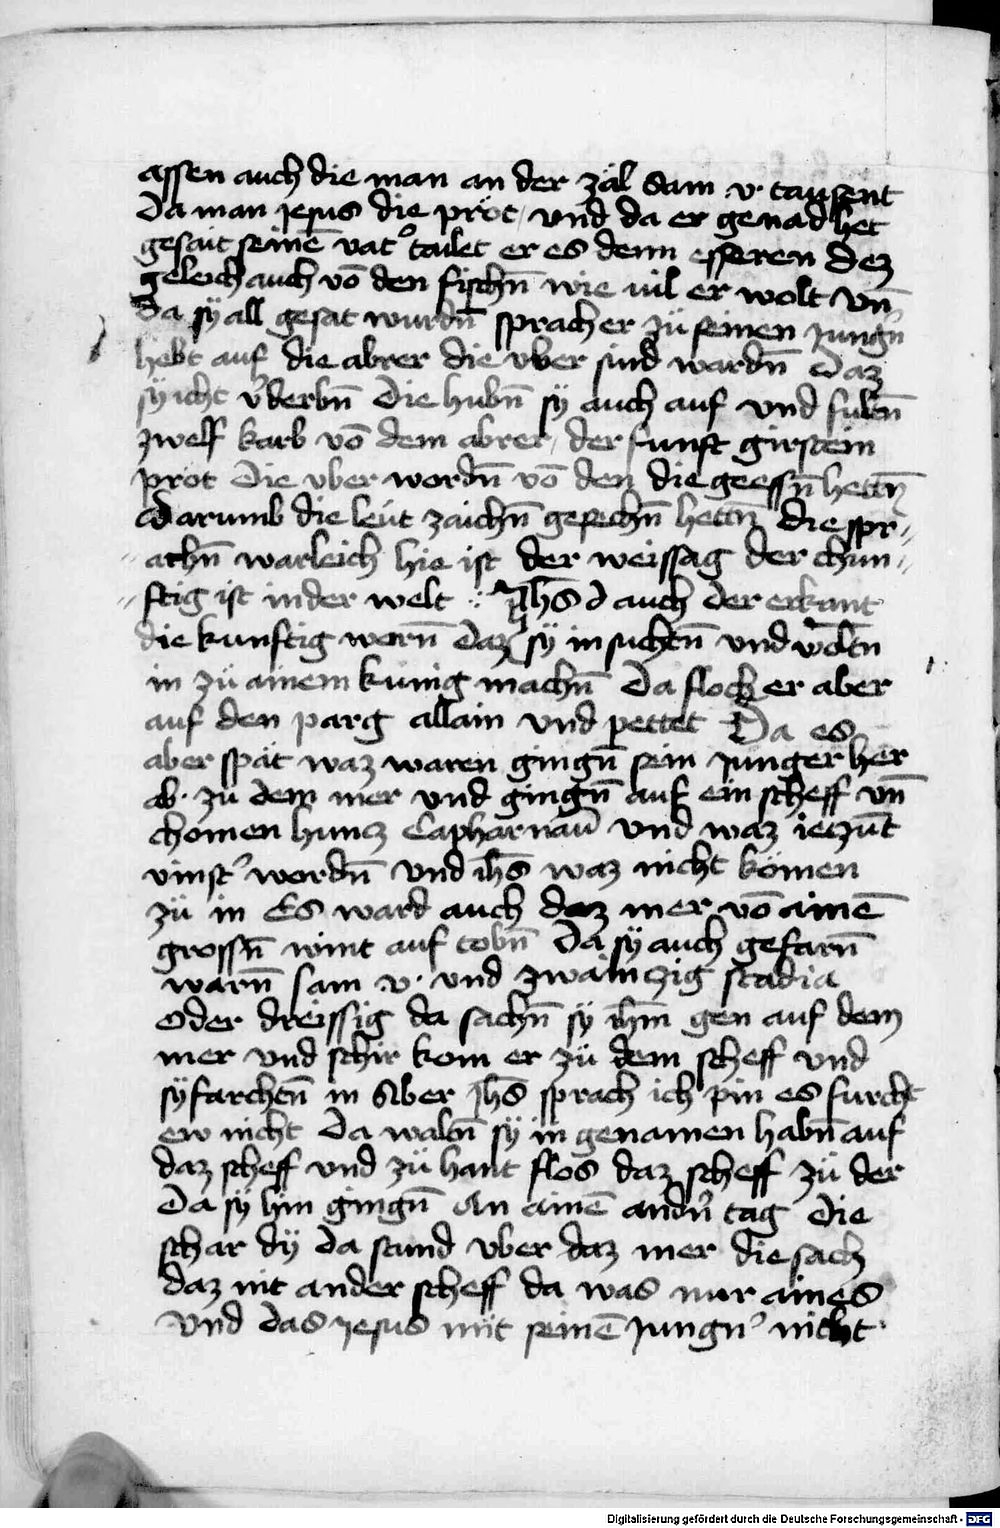 assen auch die man an der zäl Sam v· tausent
Da man jesus die pröt / und da er genad het
gesait seinē vatʾ tailet er es denn esseren Dez
geleich auch vō den fischn̄ wie uil er wolt vn̄
Da sy all gesat wurdn̄ sprach er zü seinen jungn̄
hebt auf die abrer die vber sind wardn̄ Daz
sy icht vʾderbn̄ Die hubn̄ sy auch auf und fultn̄
zwelf karb vō dem abrer / der funft girstein
pröt Die vber wordn̄ vō den die geessn̄ hettn̄
Darumb die leüt zaichn̄ gesechn̄ hettn̄ die spr=
=achn̄ warleich hie ist der weissag der chun=
=ftig ist in der welt : Ihs̄ d auch der erkant
die kunftig warn̄ Daz sy in suchtn̄ und woltn
in zü ainem kunig machn̄ Da floch er aber
auf den parg allain und pettet Da es
aber spät waz waren gingn̄ sein junger her
ab· zü dem mer und gingn̄ auf ein scheff vn̄
chomen huncz Capharnau̅ und waz ieczūt
vinstʾ wordn̄ und ihs̄ waz nicht kömen
zü in Es ward auch daz mer vō ainē
grossn̄ wint auf tobn̄ Da sy auch gefarn̄
warn̄ sam v· und zwainczig stadia
Oder dreissig da sachn̄ sy ihm̄ gen auf dem
mer und schir kom er zü dem scheff und
sy farchtn̄ in Aber Jhs̄ sprach ich pin es furcht
ew nicht Da waltn̄ sy in genamen habn̄ auf
daz scheff und zü hant flos daz scheff zü der
Da sy hin gingn̄ An ainē andn̄ tag Die
schar dÿ da stund vber daz mer die sach
daz nit ander scheff da was nur aines
Und das jesus mit seinē jungnʾ nicht·
Digitalisierung gefördert durch die Deutsche Forschungsgemeinschaft - DFG